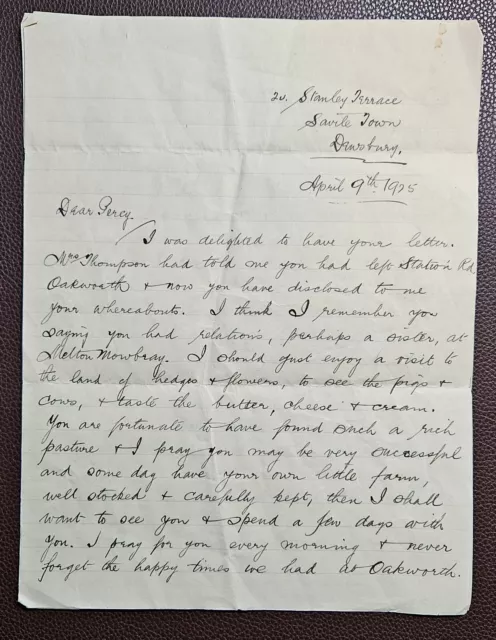 20. Stanley Terrace
Savile Town
Dewsbury.
April 9th 1925
Dear Percy.
I was delighted to have your letter.
Mrs Thompson had told me you had left Station Rd
Oakworth & now you have disclosed to me
your whereabouts. I think I remember you
saying you had relations, perhaps a sister, at
Melton Mowbray. I should just enjoy a visit to
the land of hedges & flowers, to see the pigs &
cows, & taste the butter, cheese & cream.
You are fortunate to have found such a rich
pasture & I pray you may be very successful
and some day have your own little farm,
well stocked & carefully kept, then I shall
want to see you & spend a few days with
you. I pray for you every morning & never
forget the happy times we had at Oakworth.